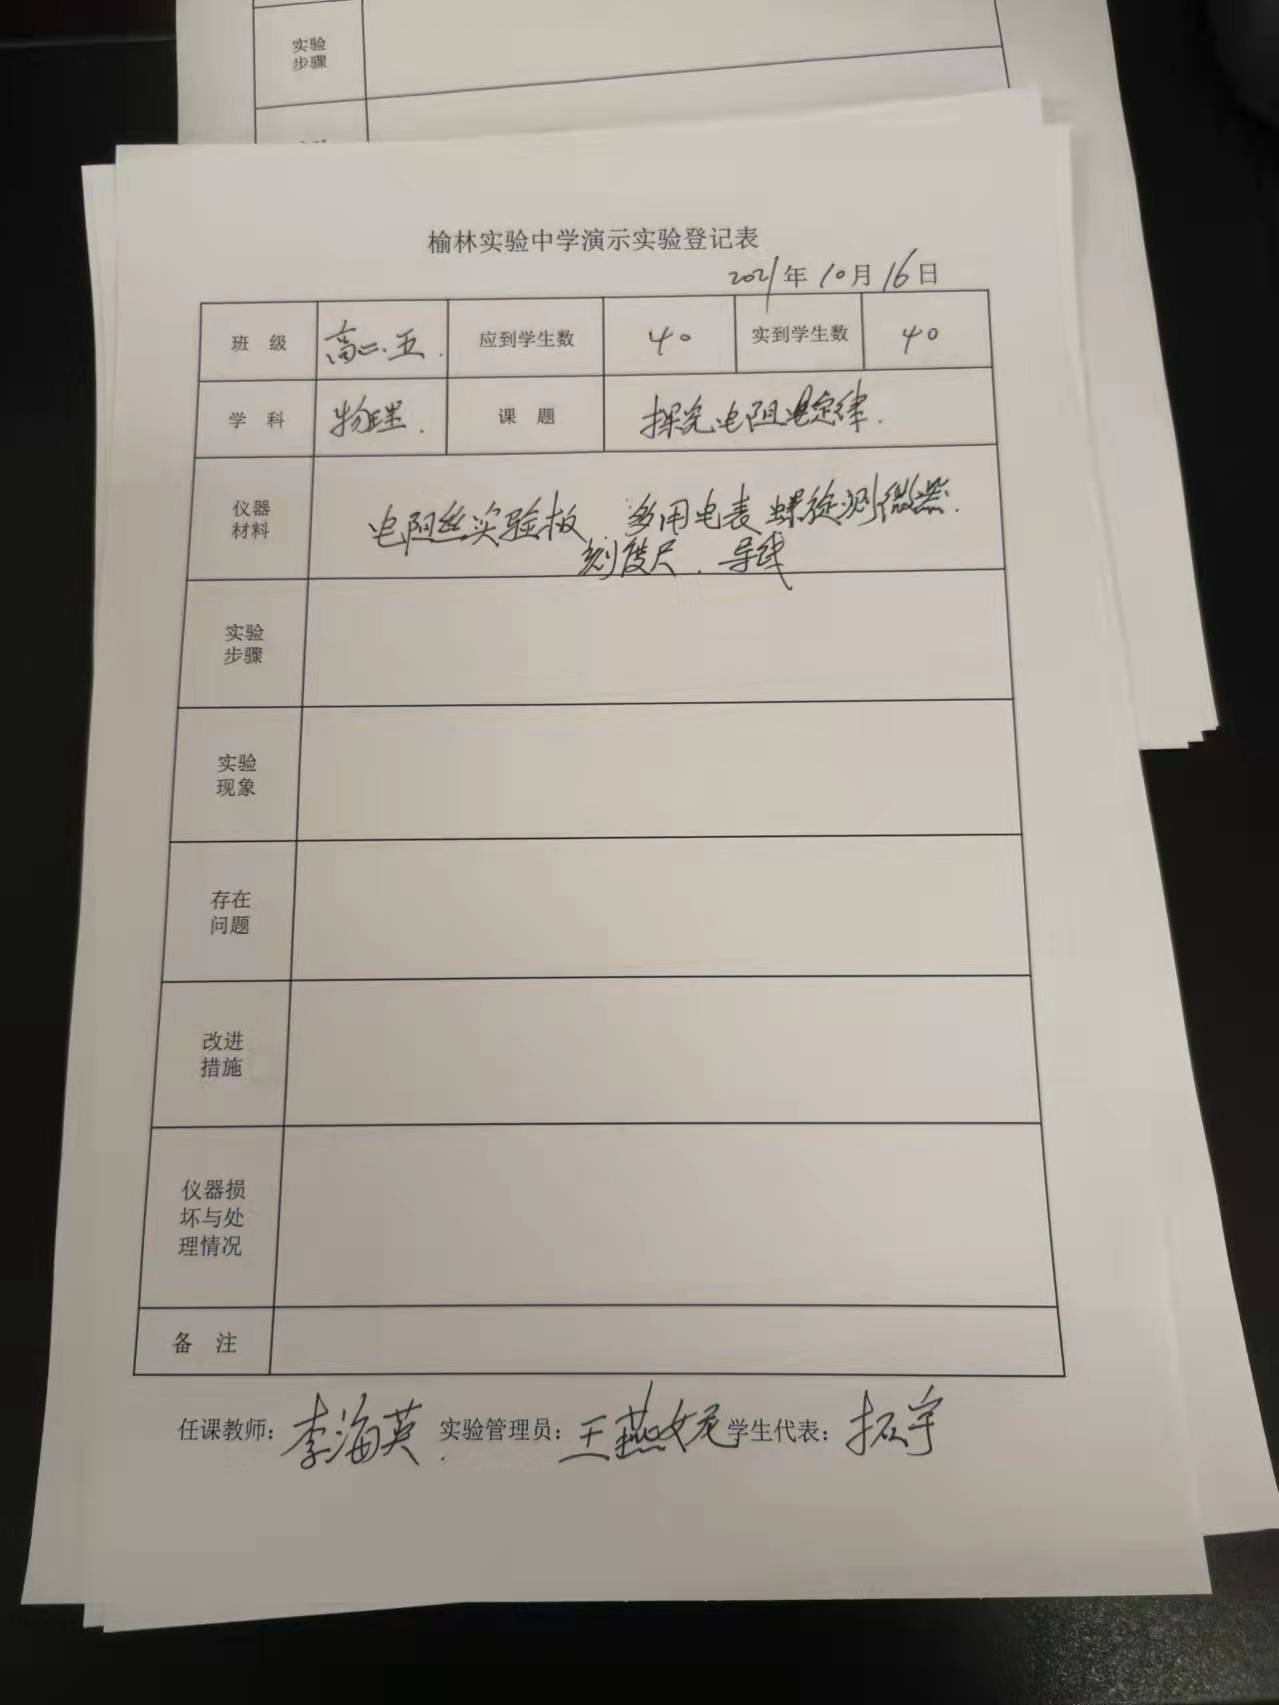 实验
步骤
榆林实验中学演示实验登记表
2021年10月16日
班 级 高二.五. 应到学生数 40 实到学生数 40
学 科 物理. 课 题 探究电阻定律.
仪器
材料
电阻丝实验板 多用电表 螺旋测微器.
刻度尺. 导线
实验
步骤
实验
现象
存在
问题
改进
措施
仪器损
坏与处
理情况
备 注
任课教师: 李海英. 实验管理员: 王燕妮 学生代表: 拓宇